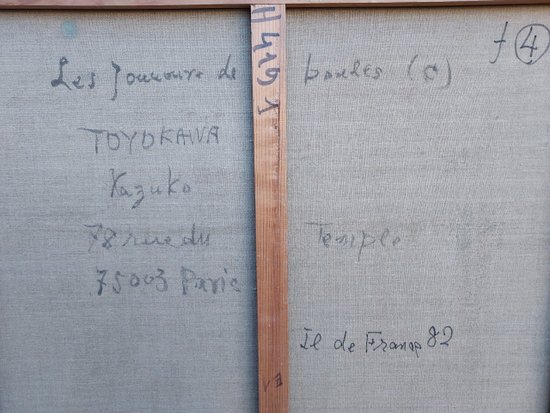 f 4
Les Joueurs de boules (c)
TOYOKAWA
Kazuko
78 rue du Temple
75003 Paris
Il de France 82